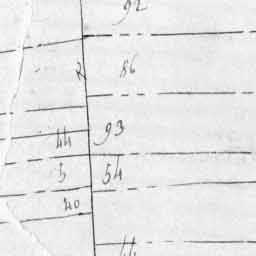 92
2 86
44 93
5 54
40
44